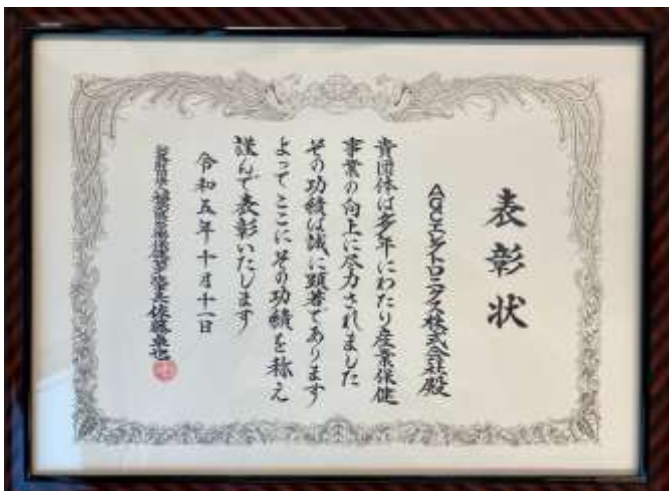 表彰状
AGCエレクトロニクス株式会社殿
貴団体は多年にわたり産業保健
事業の向上に尽力されました
その功績は誠に顕著であります
よってここにその功績を称え
謹んで表彰いたします
令和五年十月十一日
佐藤